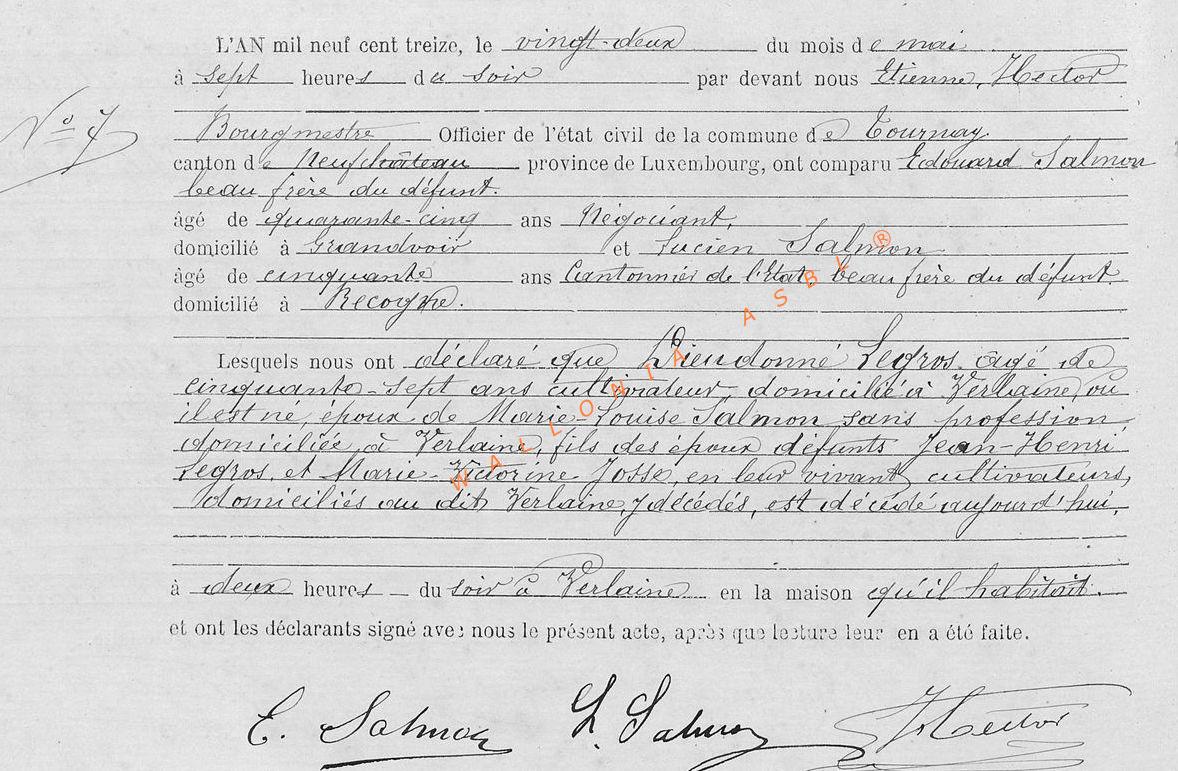 L'AN mil neuf cent treize, le vingt-deux du mois de mai
à sept heures du soir par devant nous Etienne, Hector
N° 7
Bourgmestre Officier de l'état civil de la commune de Tournay.
canton de Neufchâteau province de Luxembourg, ont comparu Edouard Salmon
beau frère du défunt.
âgé de quarante-cinq ans Négociant,
domicilié à Grandvoir et Lucien Salmon
âgé de cinquante ans Cantonnier de l'Etat, beau frère du défunt.
domicilié à Recogne.
Lesquels nous ont déclaré que Dieudonné Legros. agé de
cinquante-sept ans cultivateur, domicilié à Verlaine, où
il est né, époux de Marie-Louise Salmon sans profession
domiciliée à Verlaine, fils des époux défunts Jean-Henri
Legros, et Marie-Victorine Josse, en leur vivant cultivateurs,
domiciliés au dit Verlaine, y décédés, est décédé aujourd'hui,
à deux heures du soir à Verlaine en la maison qu'il habitait.
et ont les déclarants signé avec nous le présent acte, après que lecture leur en a été faite.
E. Salmon L. Salmon Hector
WALLONIA ASBL ®